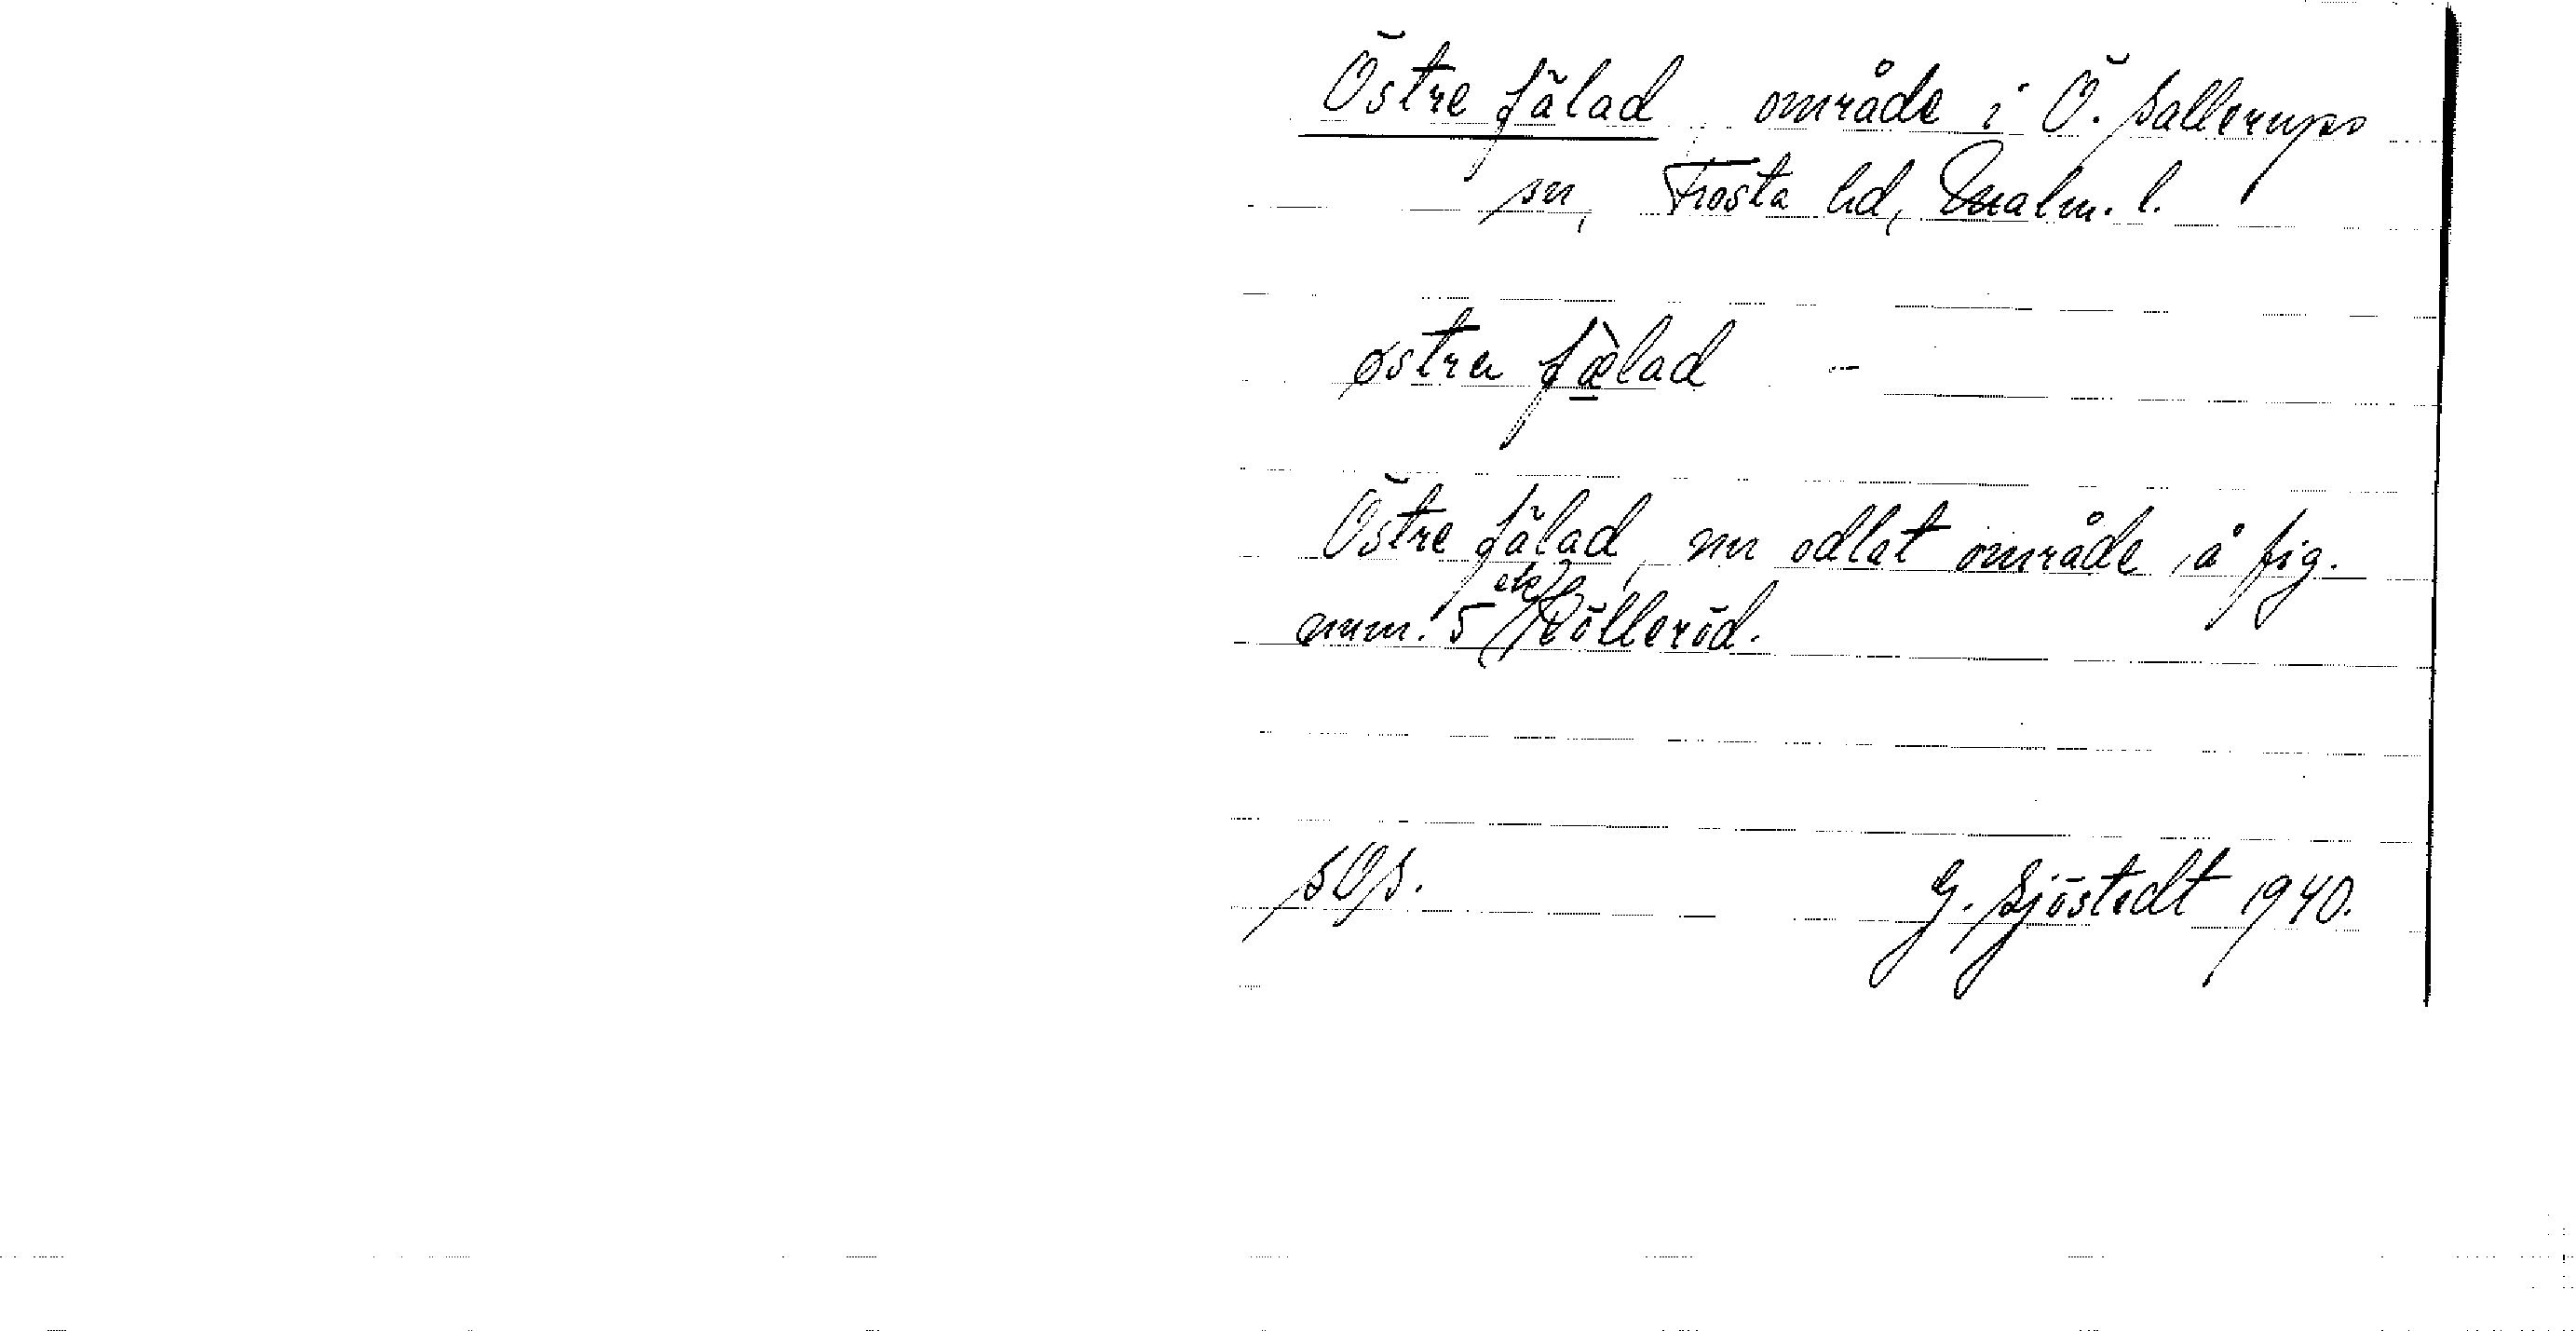 Östre fälad område i Ö. Sallerups
sn, Frosta hd, Malm. l.
østrɐ fæ̀lad -
Östre fälad, nu odlat område å fig.
num. 5 ek. Rölleröd.
SOS. G. Sjöstedt 1940.